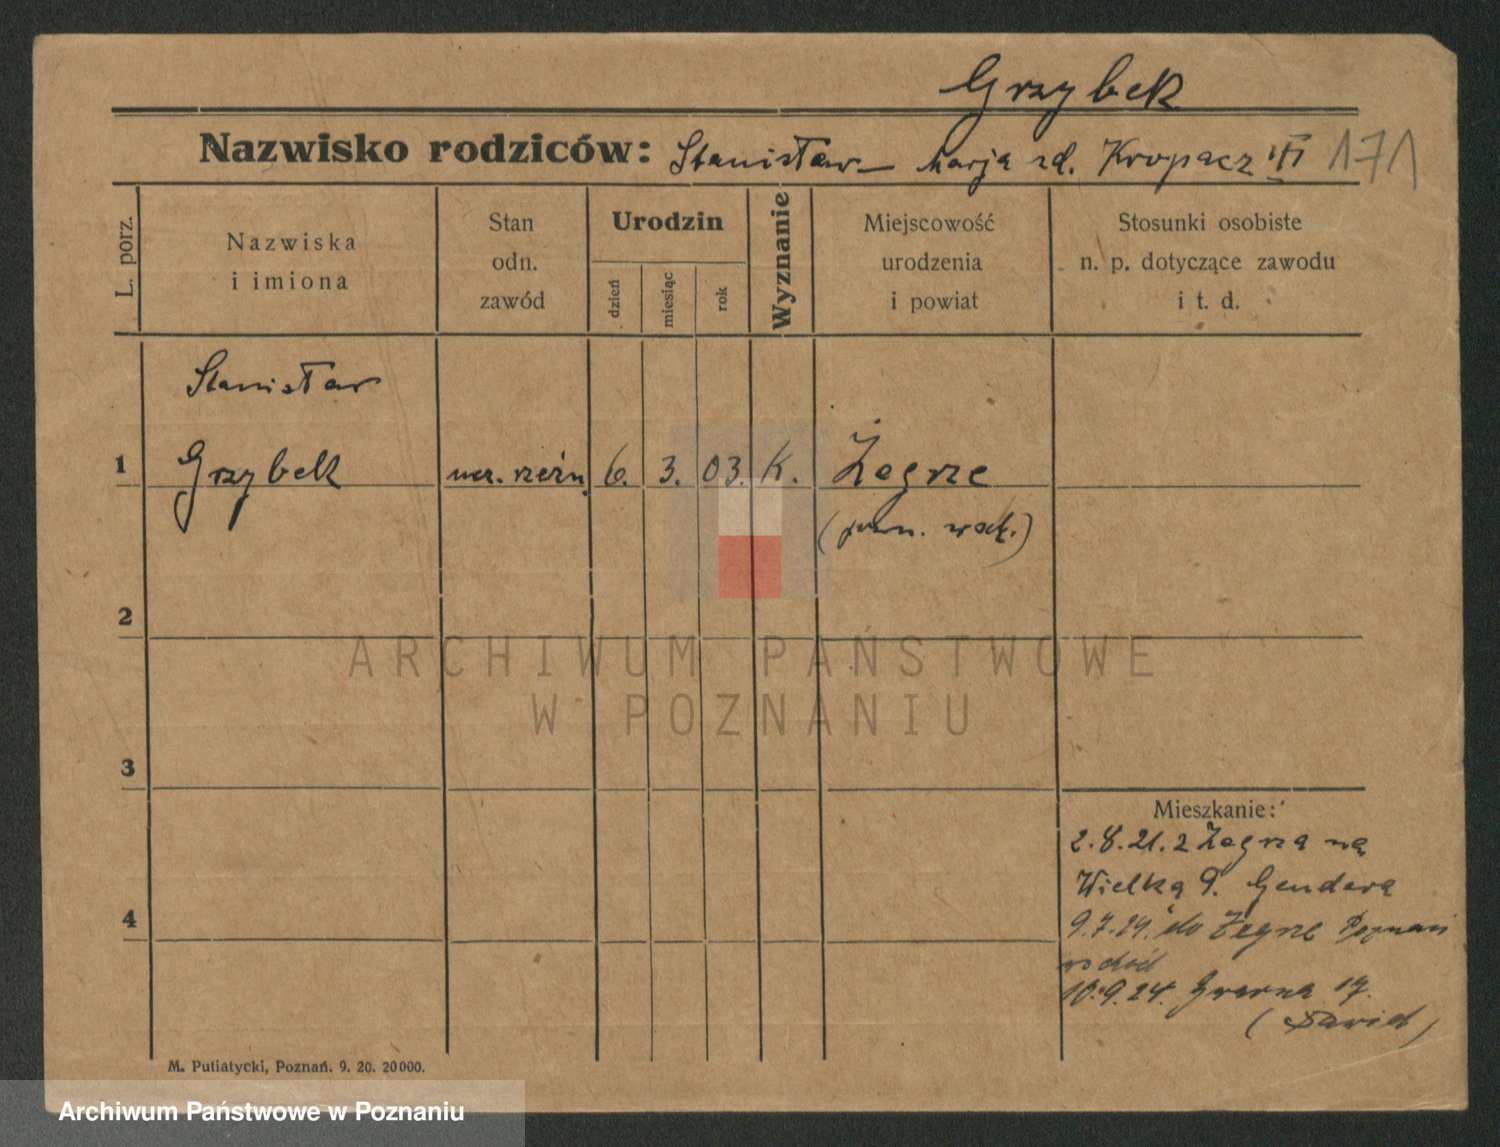 Grzybek
Nazwisko rodziców: Stanisław – Marja zd. Kropacz 171
L. porz.
Nazwiska
i imiona
Stan
odn.
zawód
Urodzin
dzień
miesiąc
rok
Wyznanie
Miejscowość
urodzenia
i powiat
Stosunki osobiste
n. p. dotyczące zawodu
i t. d.
Stanisław
1 Grzybek ucz. rzeźn. 6. 3. 03. K. Żegrze
(pozn. wsch.)
2
ARCHIWUM PAŃSTWOWE
W POZNANIU
3
Mieszkanie:
2.8.21. z Żegrza na
Wielką 9. Gendera
9.7.24. do Żegrze Poznań
wschód
10.9.24. 17.
(Dawid)
4
M. Putiatycki, Poznań. 9. 20. 20000.
Archiwum Państwowe w Poznaniu